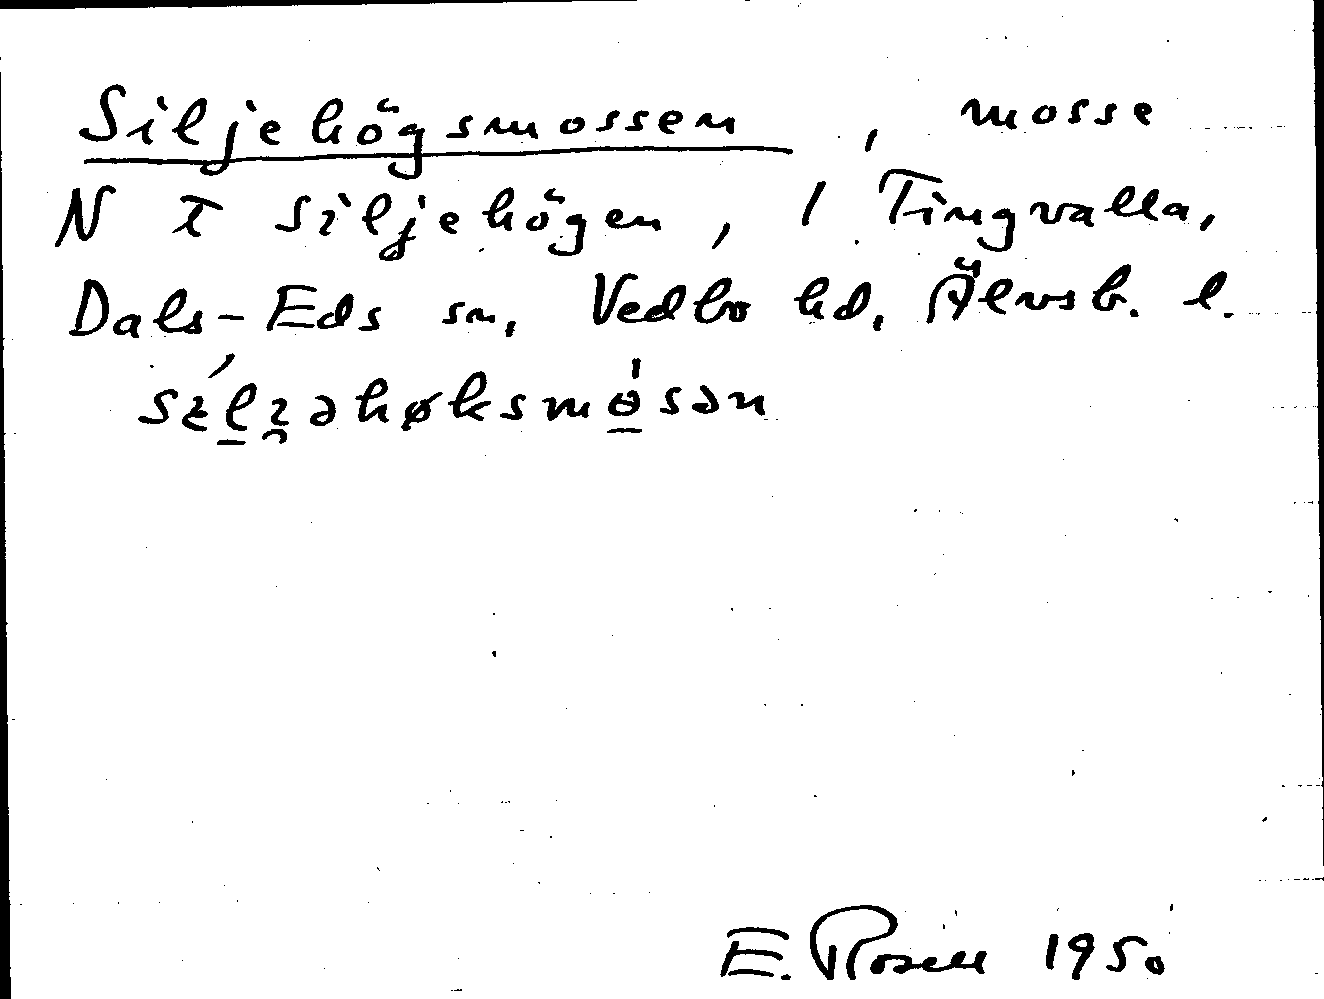 Siljehögsmossen, mosse
N I Siljehögen, / Tingvalla,
Dals-Eds sn, Vedbo hd, Älvsb. l.
E. Rosell 1950